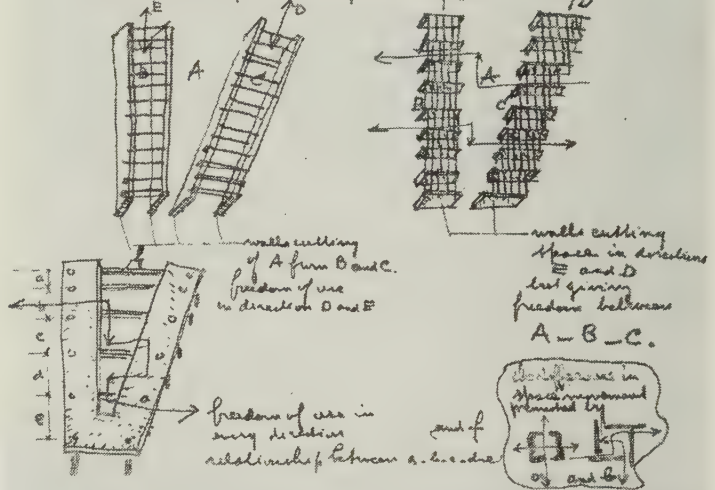 E
D
D
B
A
C
A
B
C
walls cutting
of A from B and C.
freedom of use
in direction D and E
walls cutting
space in directions
E and D
but giving
freedom between
A – B – C.
a
b
c
d
e
freedom of use in
every direction
relationship between a-b-c-d-e
and f
difference in
space movement
promoted by
a and b